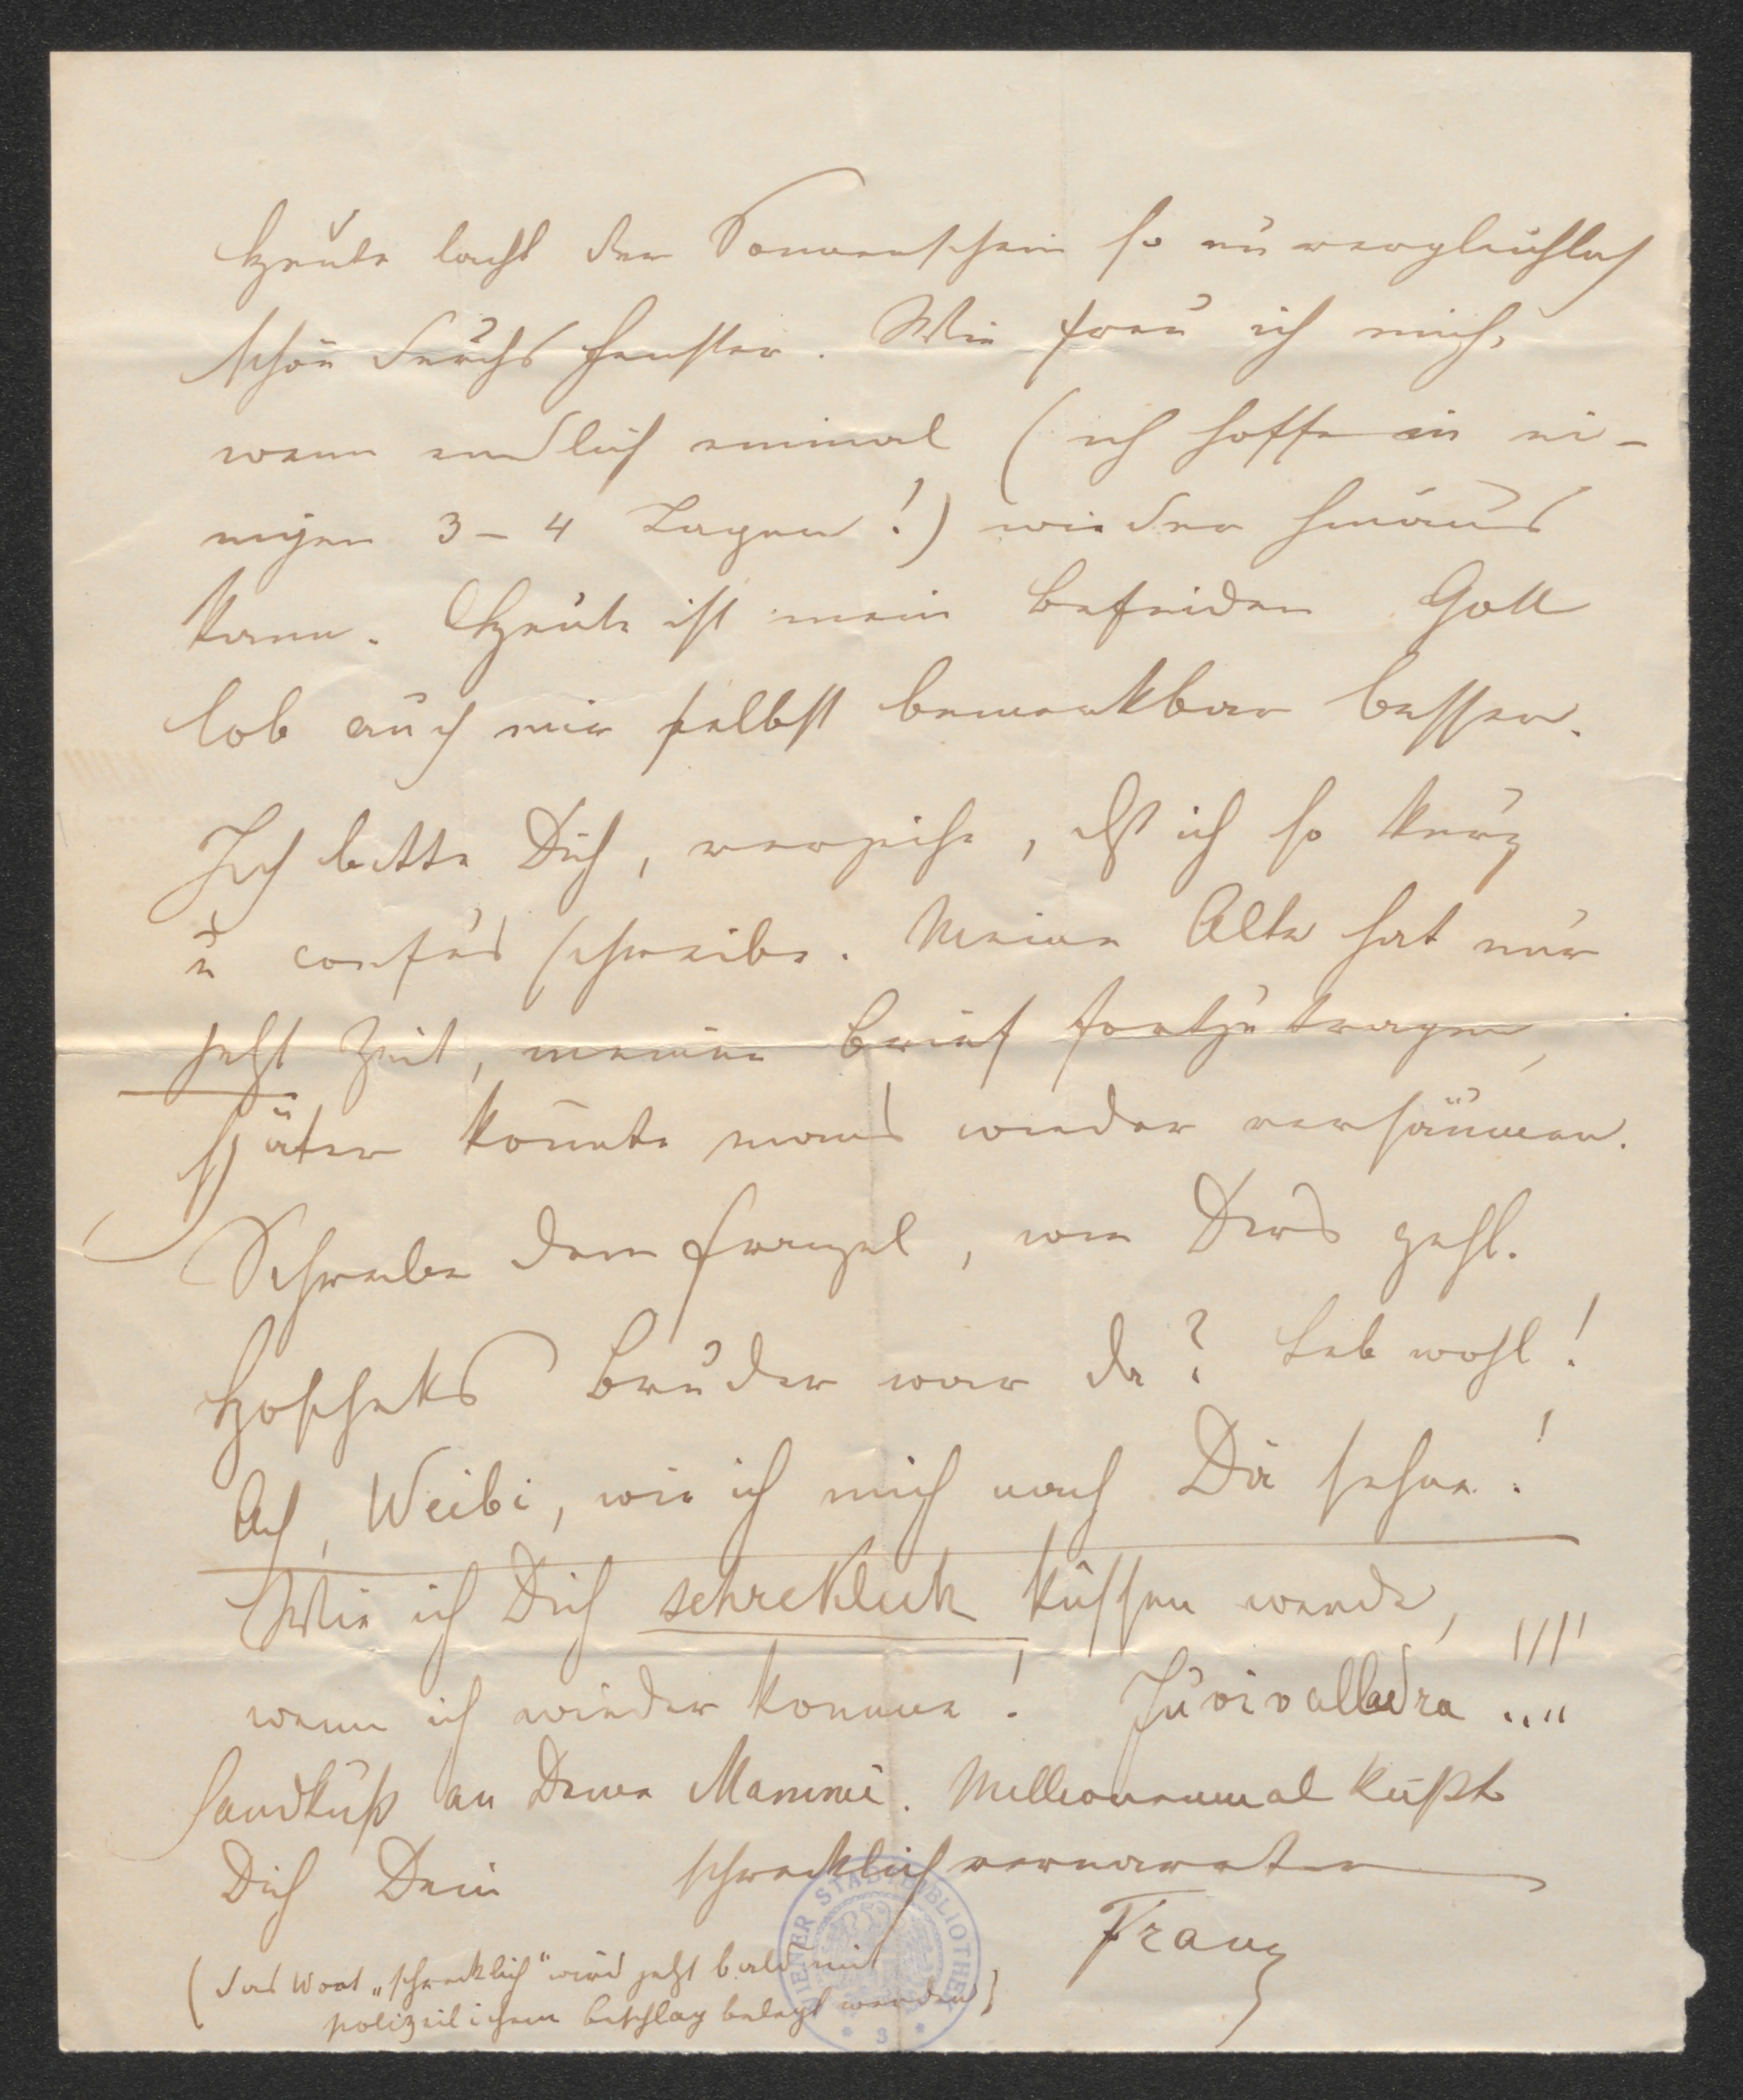 Heute lacht der Sonnenschein so unvergleichlich
schön durchs Fenster. Wie freu ich mich,
wenn endlich einmal (ich hoffe in ei-
nigen 3 – 4 Tagen!) wieder hinaus
kann. Heute ist mein Befinden Gott
lob auch mir selbst bemerkbar besser.
Ich bitte Dich, verzeihe, dß ich so kurz
u confus schreibe. Meine Alte hat nur
jetzt Zeit, meinen Brief fortzutragen,
später könnte mans wieder versäumen.
Schreibe dem Franzel, wie Dirs geht.
Hoscheks Bruder war da? Leb wohl!
Ach, Weibi, wie ich mich nach Dir sehne!
Wie ich Dich schreklich küssen werde,
wenn ich wieder komme! Juvivalladra !!!!
Handkuß an Deine Mammi. Millionenmal küßt
Dich Dein schrecklich vernarrter
Franz
(das Wort „schrecklich" wird jetzt bald mit
polizeilichem Beschlag belegt werden)
WIENER STADTBIBLIOTHEK
* 3 *